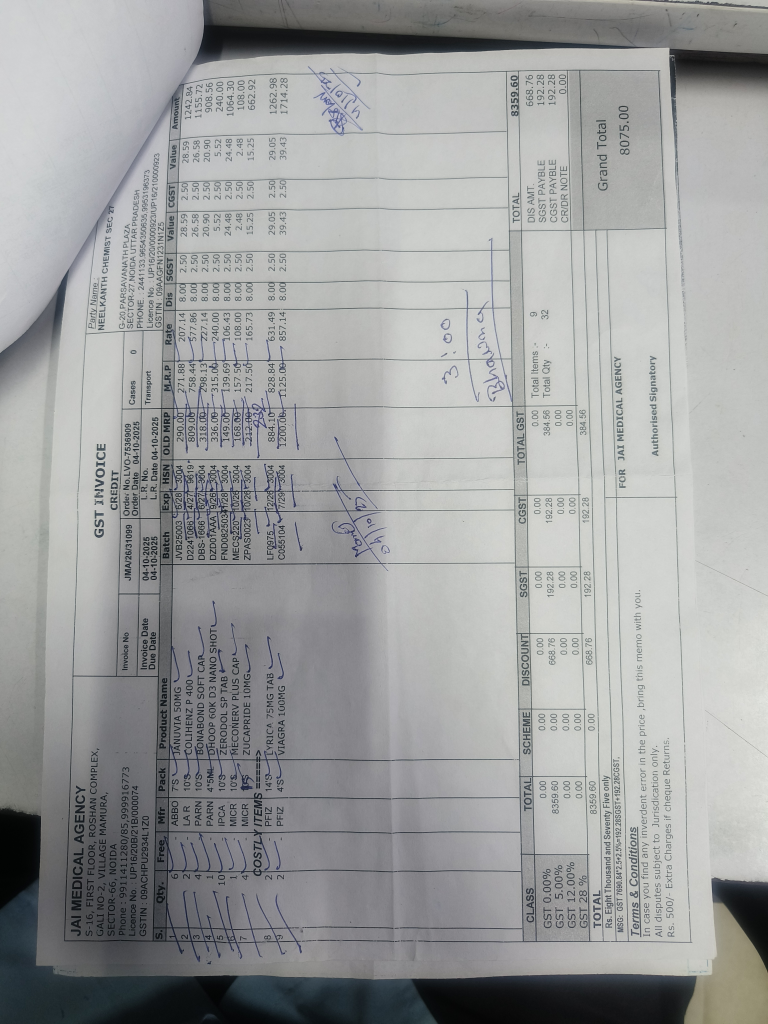 JAI MEDICAL AGENCY
S-16, FIRST FLOOR, ROSHAN COMPLEX,
GALI NO-2, VILLAGE MAMURA,
SECTOR-66, NOIDA
Phone : 9911411280/85,9999916773
Licence No : UP1620B/21B/000074
GSTIN : 09ACHPU2934L1Z0
GST INVOICE
CREDIT
Invoice No JMA/26/31099 Order No. LVO-7536909
Order Date 04-10-2025
Invoice Date 04-10-2025 L.R. No.
Due Date 04-10-2025 L.R. Date 04-10-2025
Cases 0
Transport
Party Name :
NEELKANTH CHEMIST SEC 27
G-20,PARSAVANATH PLAZA,
SECTOR-27,NOIDA UTTAR PRADESH
PHONE : 2441133,9654350635,9953196373
Licence No UP16/20/0000923/UP16/21/0000923
GSTIN : 09AAGFN1231N1Z5
S. Qty. Free Mfr Pack Product Name Batch Exp HSN OLD MRP M.R.P Rate Dis SGST Value CGST Value Amount
1 6 - ABBO 7'S JANUVIA 50MG JVB25003 6/28 3004 290.00 271.88 207.14 8.00 2.50 28.59 2.50 28.59 1242.84
2 2 - LA R 10'S COLIHENZ P 400 4/27 9619 809.00 758.44 577.86 8.00 2.50 26.58 2.50 26.58 1155.72
3 4 - PARN 10'S BONABOND SOFT CAP 6/27 3004 318.00 298.13 227.14 8.00 2.50 20.90 2.50 20.90 908.56
4 1 - PARN 4*5ML DHOOP 60K D3 NANO SHOT 3004 336.00 315.00 240.00 8.00 2.50 5.52 2.50 5.52 240.00
5 10 - IPCA 10'S ZERODOL SP TAB 3004 149.00 139.69 106.43 8.00 2.50 24.48 2.50 24.48 1064.30
6 1 - MICR 10'S MECONERV PLUS CAP 10/26 3004 168.00 157.50 108.00 8.00 2.50 2.48 2.50 2.48 108.00
7 4 - MICR ZUCAPRIDE 10MG ZPAS0023 10/26 3004 212.00 217.50 165.73 8.00 2.50 15.25 2.50 15.25 662.92
232
COSTLY ITEMS =====>
8 2 - PFIZ 14'S LYRICA 75MG TAB LF0975 12/26 3004 884.10 828.84 631.49 8.00 2.50 29.05 2.50 29.05 1262.98
9 2 - PFIZ 4'S VIAGRA 100MG C055104 7/29 3004 1200.00 1125.00 857.14 8.00 2.50 39.43 2.50 39.43 1714.28
3:00
CLASS TOTAL SCHEME DISCOUNT SGST CGST TOTAL GST
GST 0.00% 0.00 0.00 0.00 0.00 0.00 0.00
GST 5.00% 8359.60 0.00 668.76 192.28 192.28 384.56
GST 12.00% 0.00 0.00 0.00 0.00 0.00 0.00
GST 28 % 0.00 0.00 0.00 0.00 0.00 0.00
TOTAL 8359.60 0.00 668.76 192.28 192.28 384.56
Total Items :- 9
Total Qty :- 32
TOTAL 8359.60
DIS AMT. 668.76
SGST PAYBLE 192.28
CGST PAYBLE 192.28
CR/DR NOTE 0.00
Grand Total
8075.00
Rs. Eight Thousand and Seventy Five only
MSG: GST 7690.84*2.5+2.5%=192.28SGST+192.28CGST,
Terms & Conditions
In case you find any inverdent error in the price ,bring this memo with you.
All disputes subject to Jurisdication only.
Rs. 500/- Extra Charges if cheque Returns.
FOR JAI MEDICAL AGENCY
Authorised Signatory